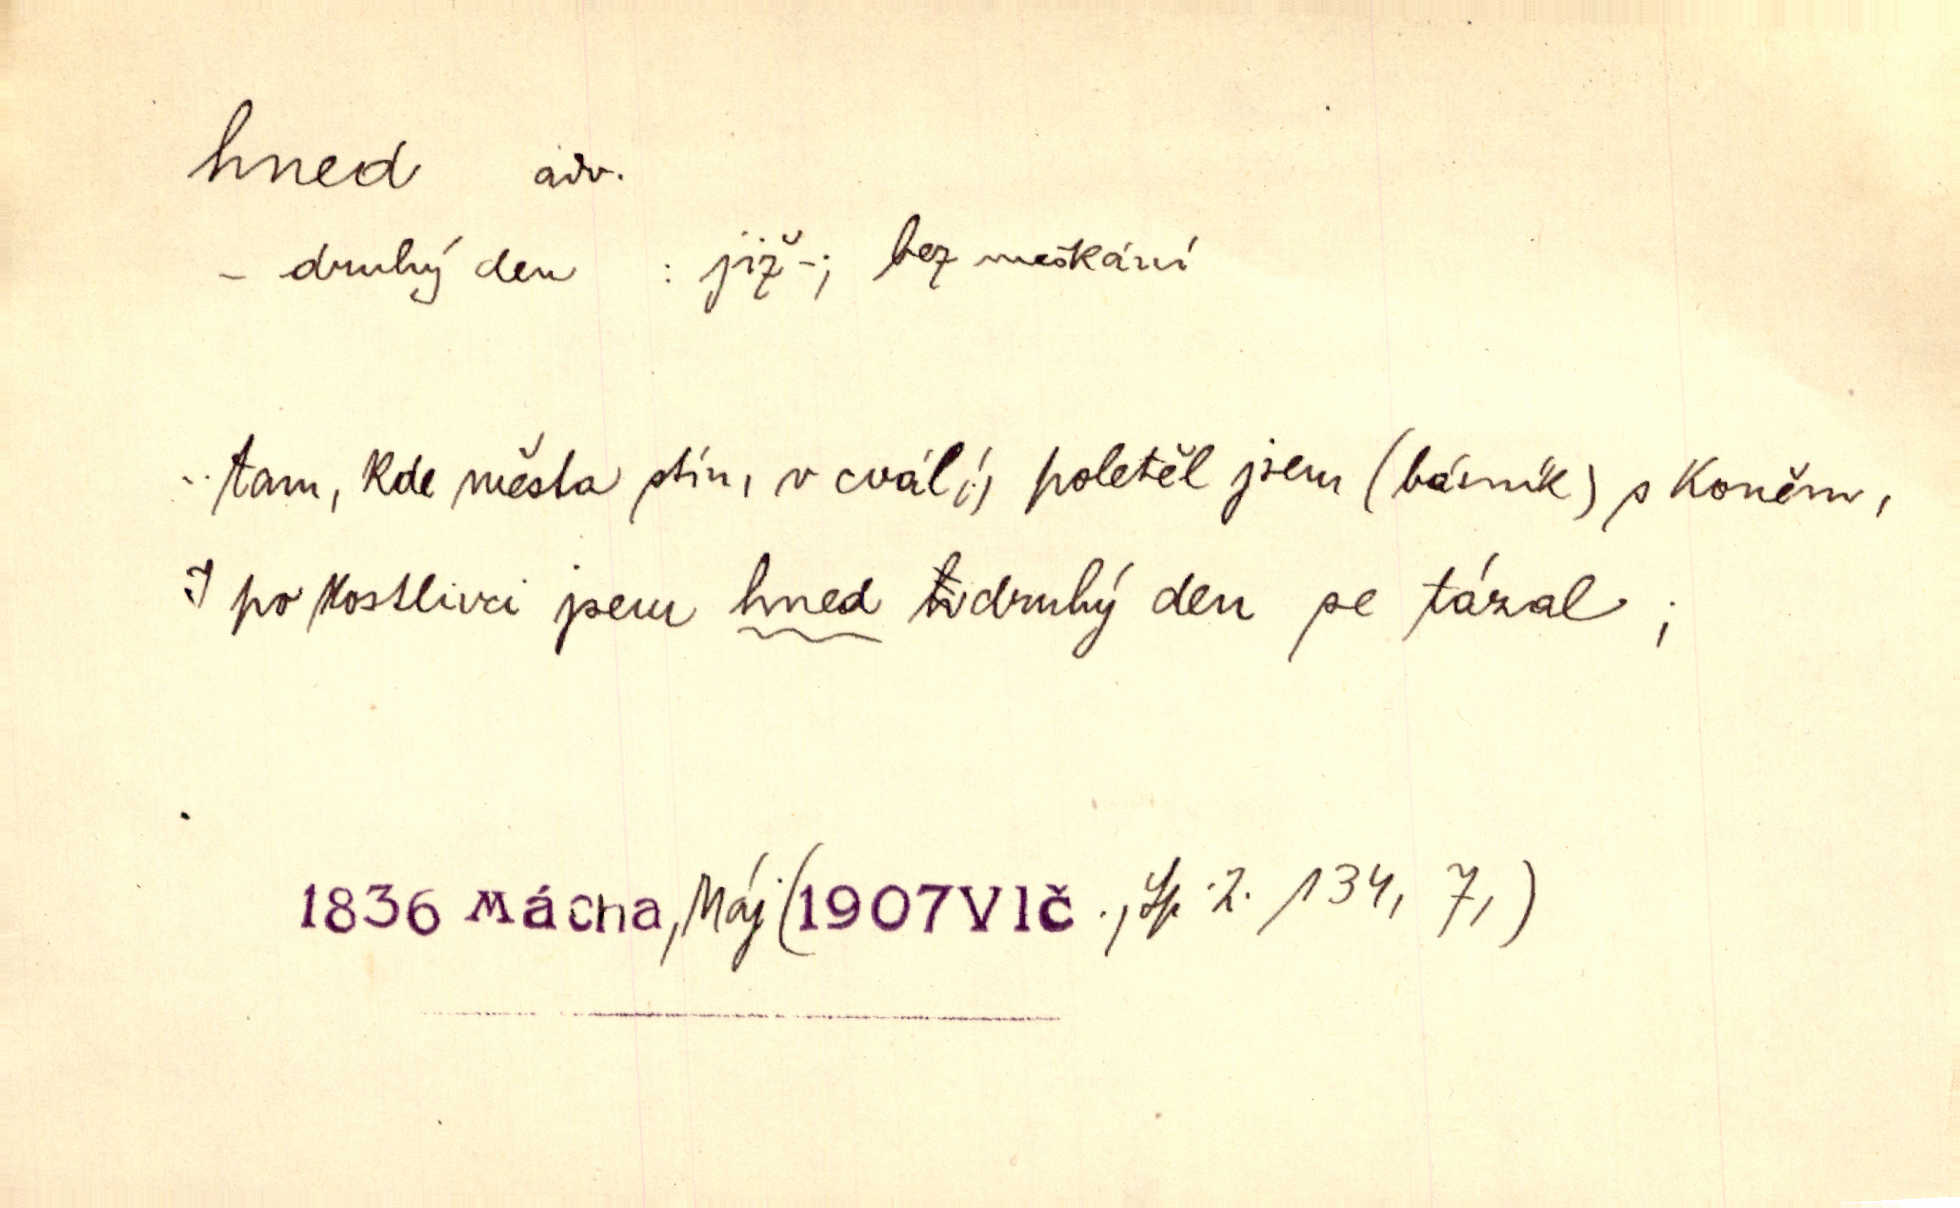 hned adv.
- druhý den : již -; bez meškání
.. tam, kde města stín, v cvál(,) poletěl jsem (básník) s koněm,
I po kostlivci jsem hned druhý den se tázal ;
1836 Mácha, Máj (1907 Vlč., Sp. 2. 134, 7,)